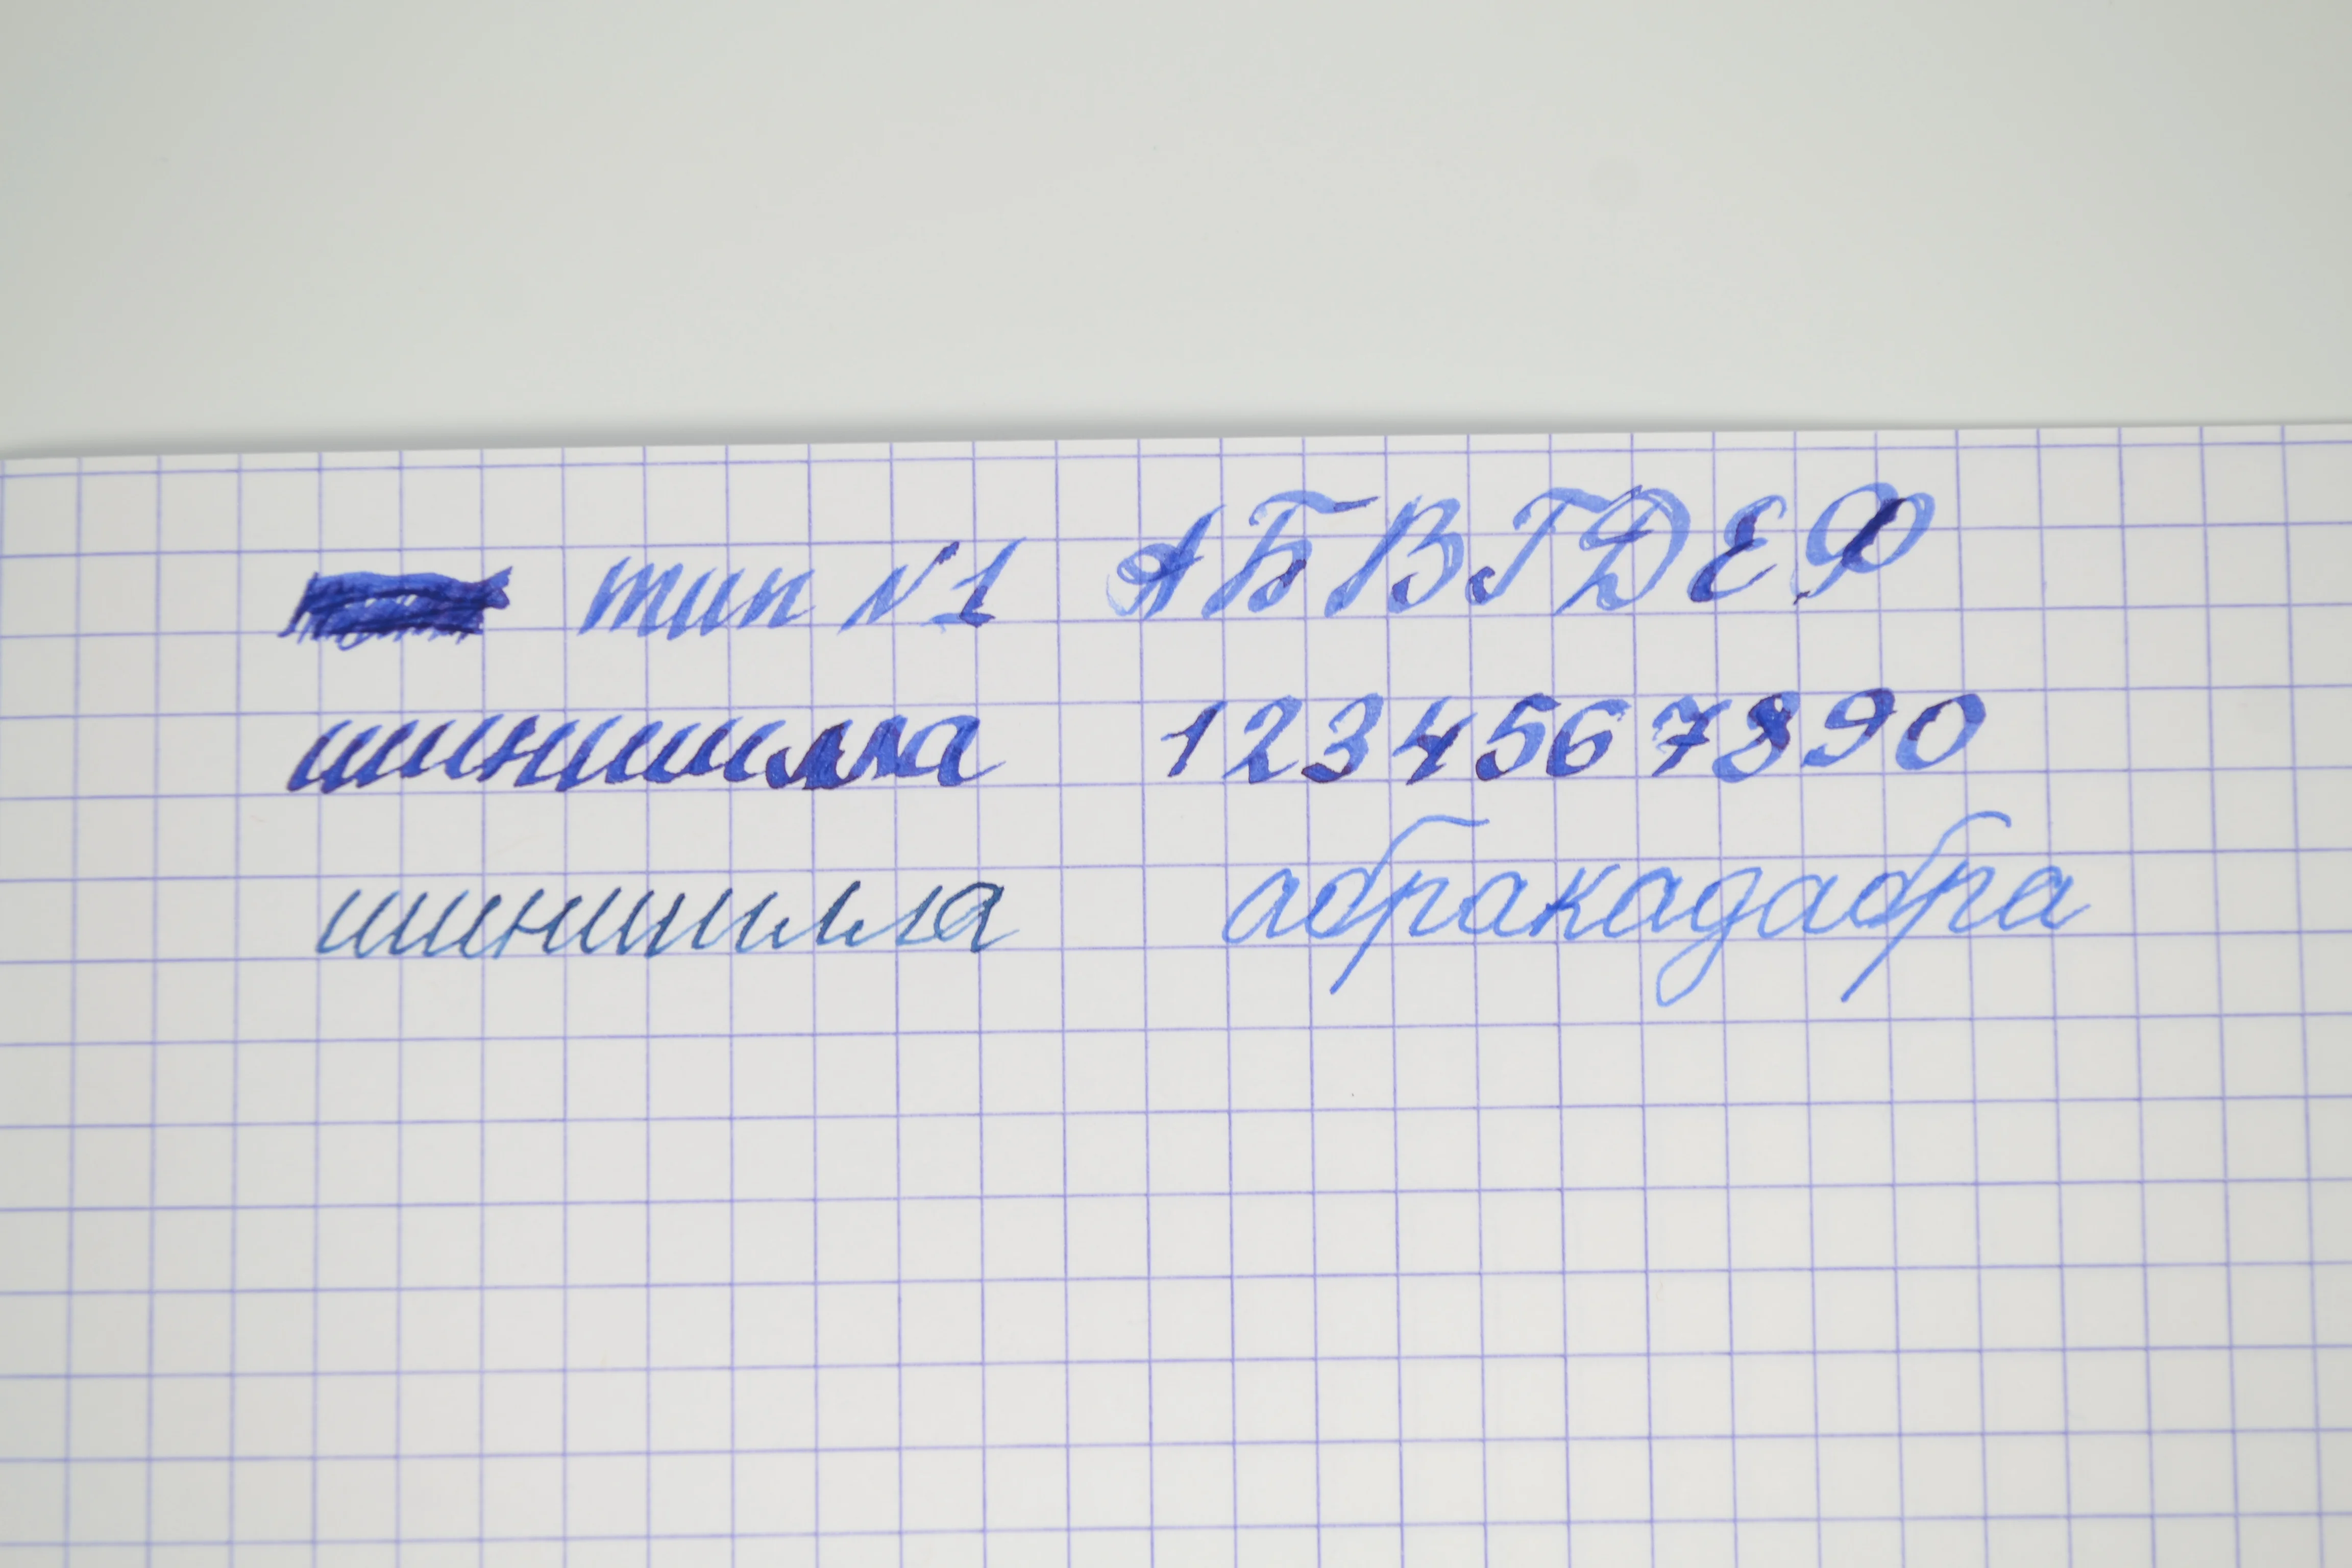 тип №1 АБВГДЕФ
шиншилла 1234567890
шиншилла абракадабра